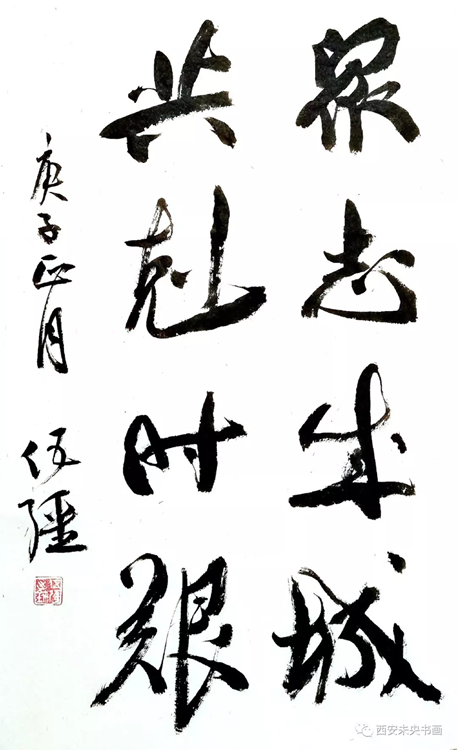 众志成城
共克时艰
庚子正月
伍疆
西安未央书画